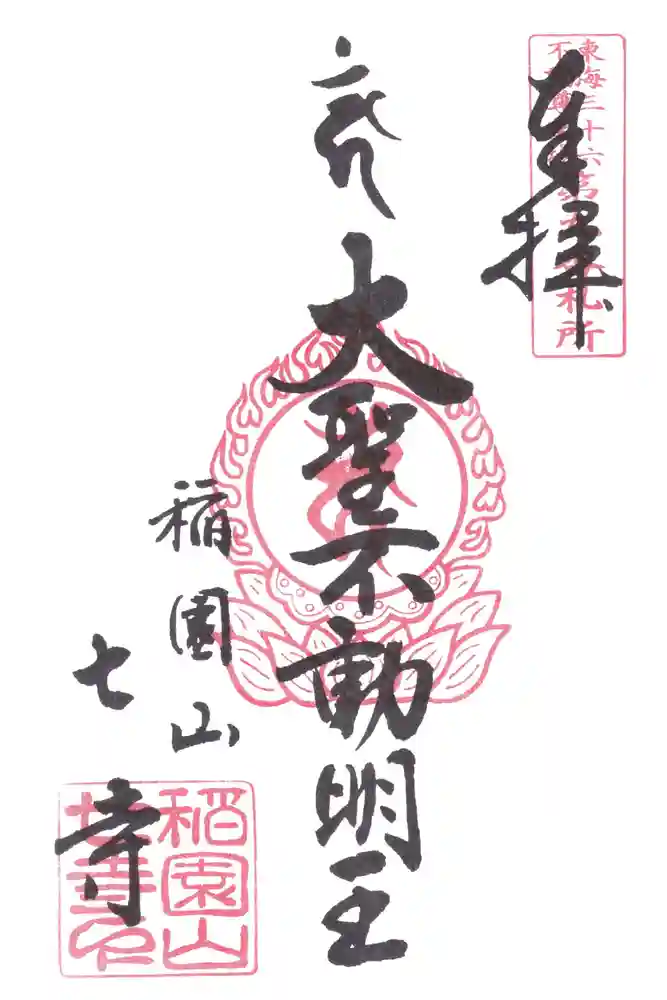 奉拝
東海三十六
不
札所
大聖不動明王
稲園山
七寺
稲園山
七寺印